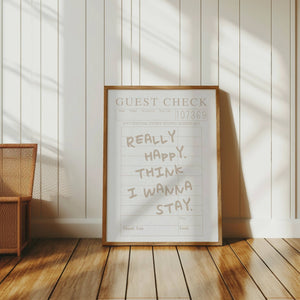 GUEST CHECK
107369
REALLY
HAPPY.
THINK
I WANNA
STAY.
Thank You